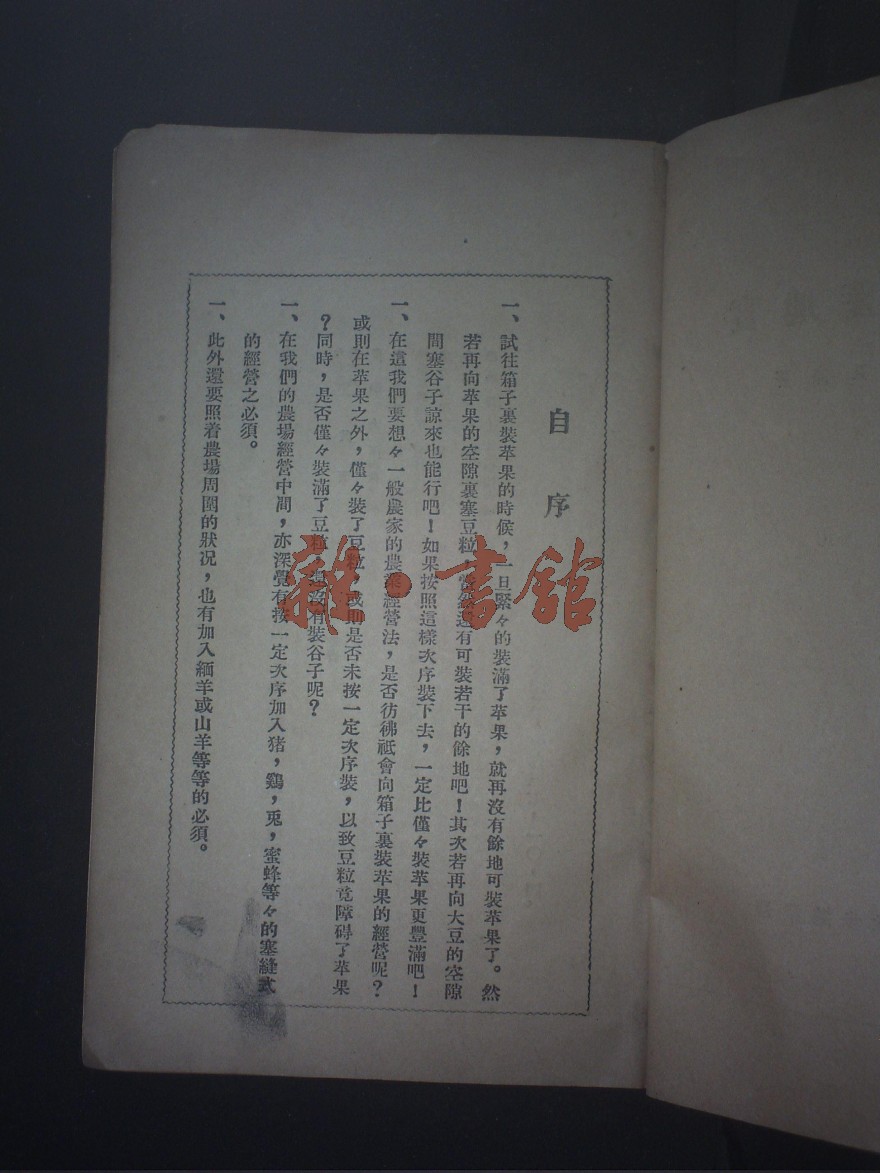 自序
一、試往箱子裏裝苹果的時候，一旦緊々的裝滿了苹果，就再沒有餘地可裝苹果了。然
若再向苹果的空隙裏塞豆粒，當然還有可裝若干的餘地吧！其次若再向大豆的空隙
間塞谷子諒來也能行吧！如果按照這樣次序裝下去，一定比僅々裝苹果更豐滿吧！
一、在這我們要想々一般農家的農業經營法，是否彷彿祇會向箱子裏裝苹果的經營呢？
或則在苹果之外，僅々裝了豆粒，或則是否未按一定次序裝，以致豆粒竟障碍了苹果
？同時，是否僅々裝滿了豆粒，還沒有裝谷子呢？
一、在我們的農場經營中間，亦深覺有按一定次序加入猪，鷄，兎，蜜蜂等々的塞縫式
的經營之必須。
一、此外還要照着農場周圍的狀况，也有加入緬羊或山羊等等的必須。
雜·書館